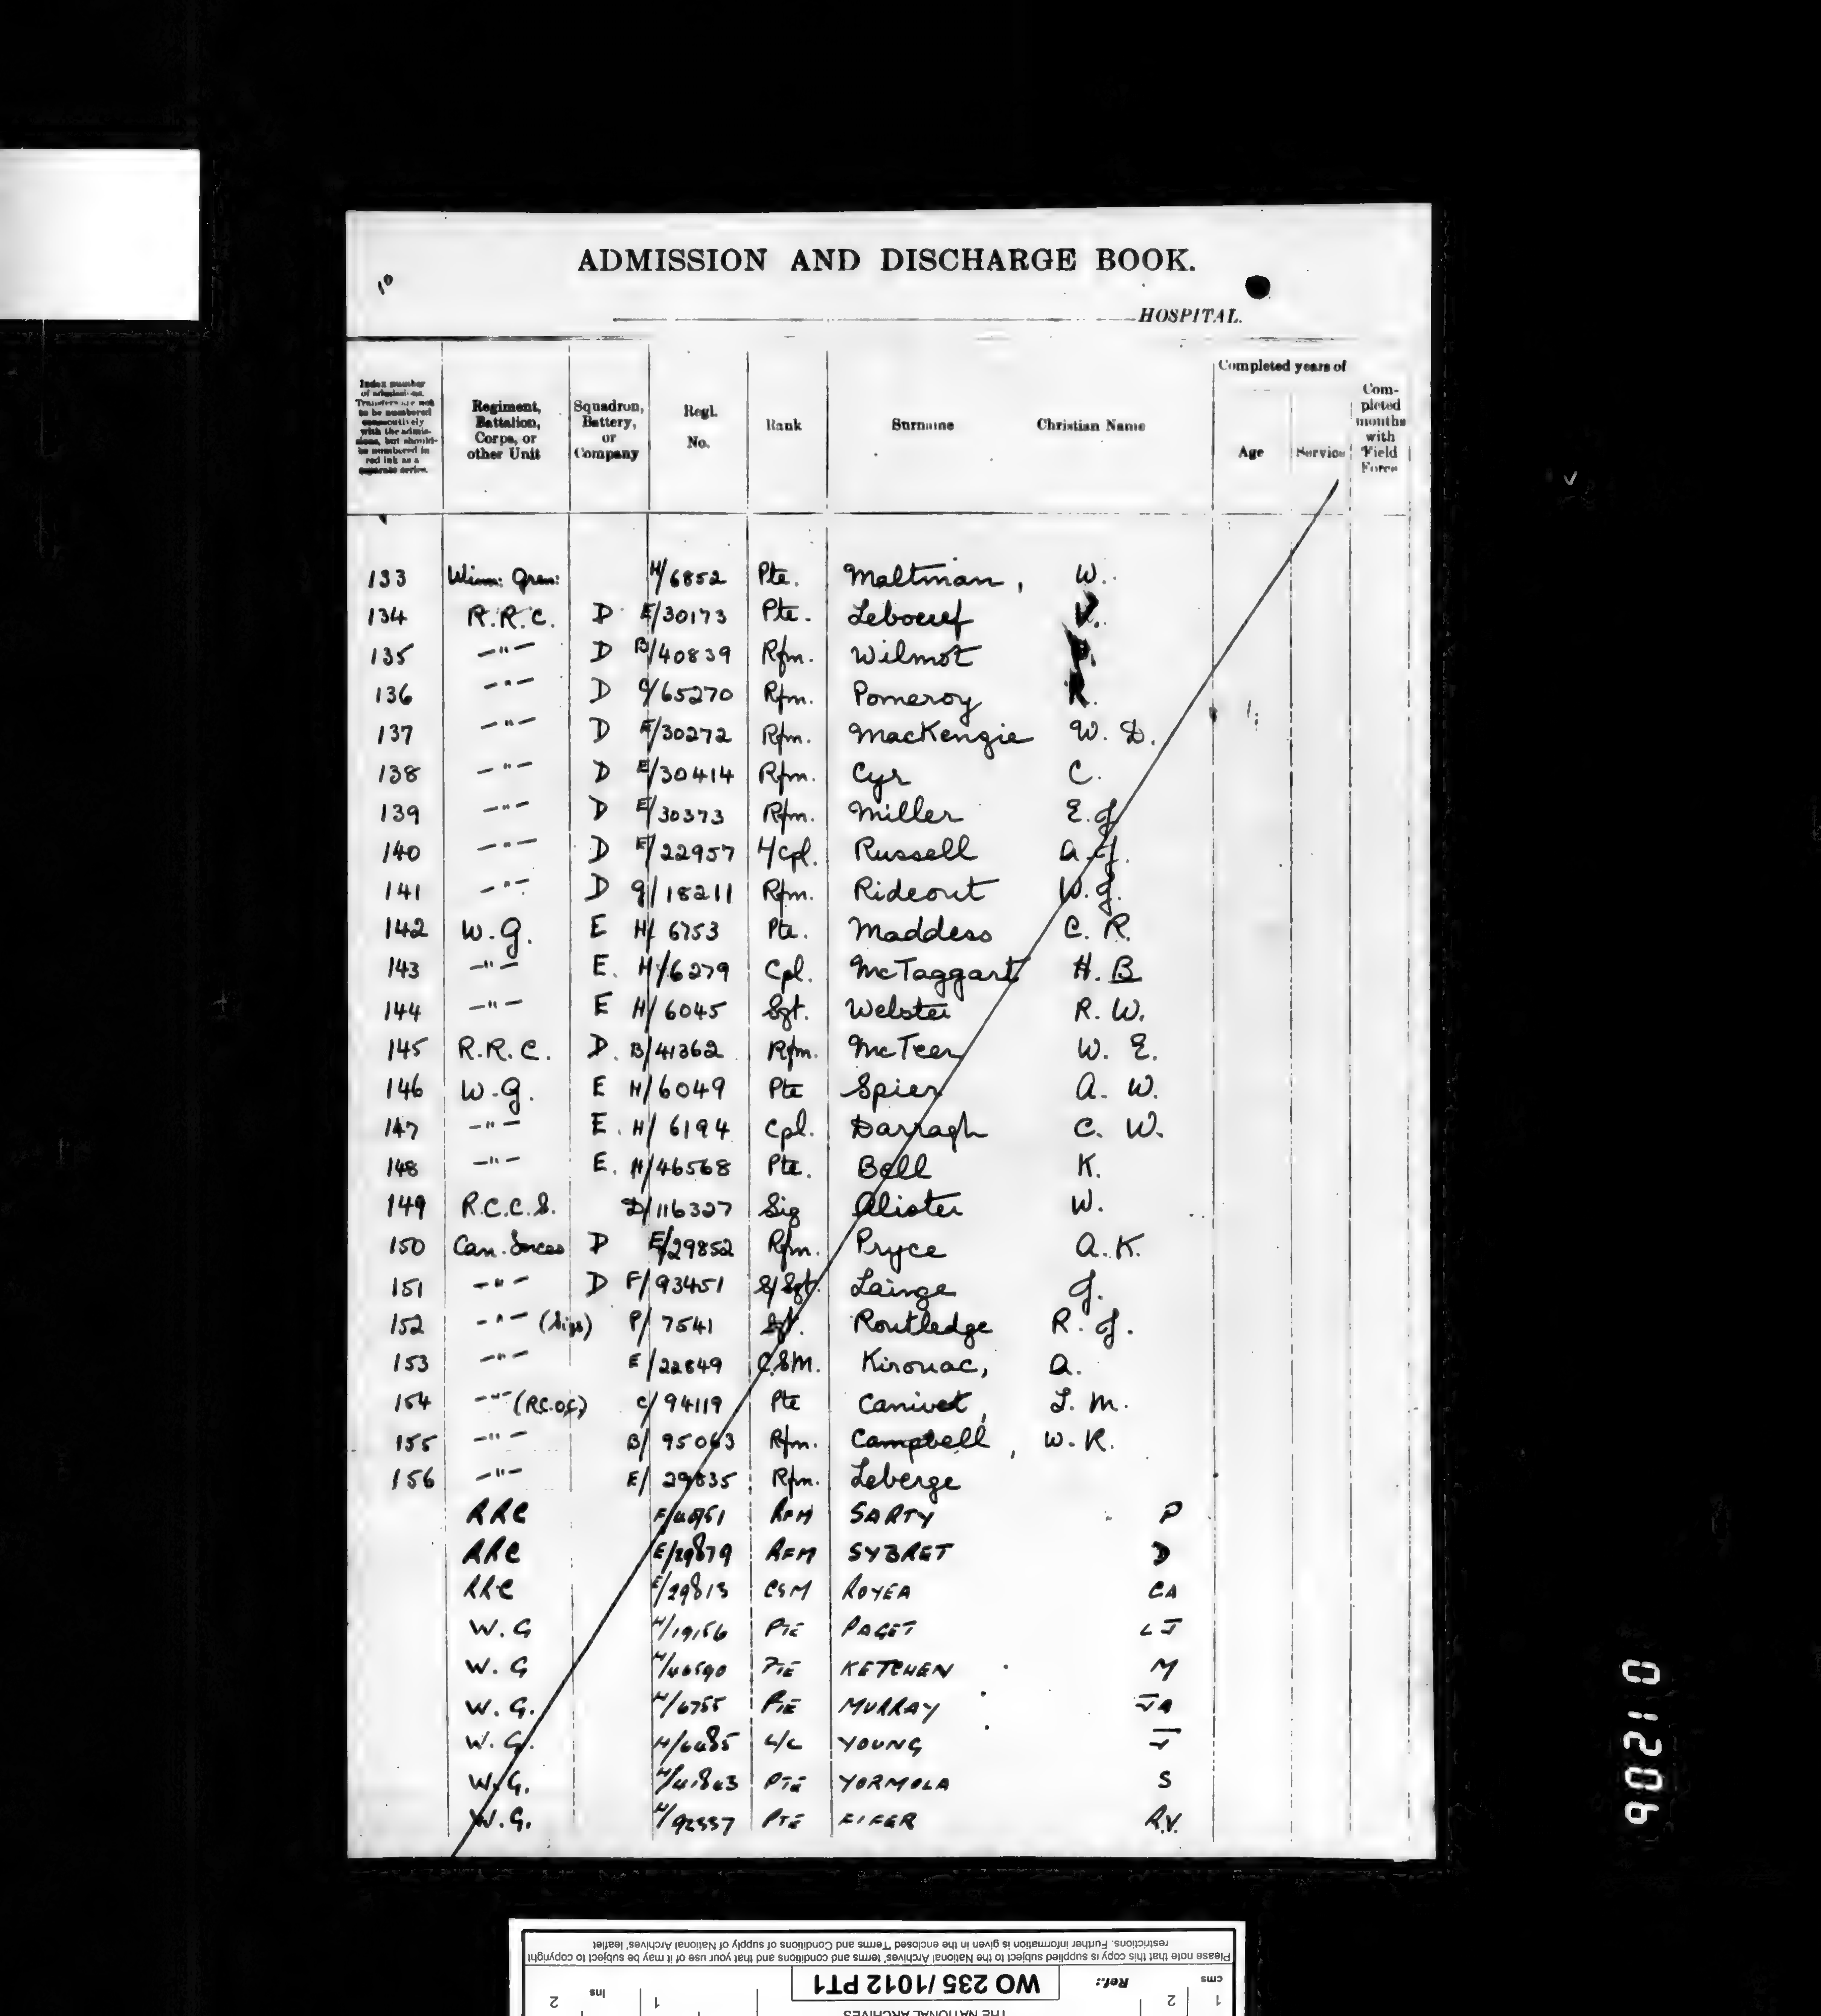 ADMISSION AND DISCHARGE BOOK.
10
HOSPITAL.
Index number of admissions. Transfers are not to be numbered consecutively with the admissions, but should be numbered in red ink as a separate series.
Regiment, Battalion, Corps, or other Unit
Squadron, Battery, or Company
Regl. No.
Rank
Surname
Christian Name
Completed years of
Age
Service
Completed months with Field Force
133 Winn: Gren: H/6852 Pte. Maltman, W.
134 R.R.C. D E/30173 Pte. Leboeuf
135 —"— D B/40839 Rfm. Wilmot
136 —"— D C/65270 Rfm. Pomeroy R.
137 —"— D E/30272 Rfm. MacKenzie W. D.
138 —"— D E/30414 Rfm. Cyr C.
139 —"— D E/30373 Rfm. Miller E.J.
140 —"— D E/22957 L/Cpl. Russell A.J.
141 —"— D G/18211 Rfm. Rideout W.J.
142 W.G. E H/6753 Pte. Maddess C. R.
143 —"— E. H/6279 Cpl. McTaggart H. B
144 —"— E H/6045 Sgt. Welster R. W.
145 R.R.C. D. B/41362 Rfm. McTeer W. E.
146 W.G. E H/6049 Pte Spier A. W.
147 —"— E. H/6194 Cpl. Darragh C. W.
148 —"— E. H/46568 Pte. Bell K.
149 R.C.C.S. D/116327 Sig Alister W.
150 Can. Forces D E/29852 Rfm. Pryce A.K.
151 —"— D F/93451 S/Sgt. Lainge J.
152 —"— (Sigs) P/7541 Sgt. Routledge R. J.
153 —"— E/22849 C.S.M. Kirouac, A.
154 —"— (R.C.O.C) C/94119 Pte Canivet, L. M.
155 —"— B/95063 Rfm. Campbell, W. R.
156 —"— E/29835 Rfm. Leberge
RRC RFM SARTY P
RRC E/29879 RFM SYBRET D
RRC E/29813 CSM ROYEA CA
W.G H/19156 PTE PAGET LJ
W.G H/46590 PTE KETCHEN M
W.G. H/6755 PTE MURRAY JA
W.G. H/6485 L/C YOUNG J
W.G. H/41843 PTE YORMOLA S
W.G. PTE FIFER R.V.
01206
Please note that this copy is supplied subject to the National Archives' terms and conditions and that your use of it may be subject to copyright
restrictions. Further information is given in the enclosed Terms and Conditions of supply of National Archives' leaflet
cms 1 2 Ref.: WO 235/1012 PT1
THE NATIONAL ARCHIVES 1 ins 2